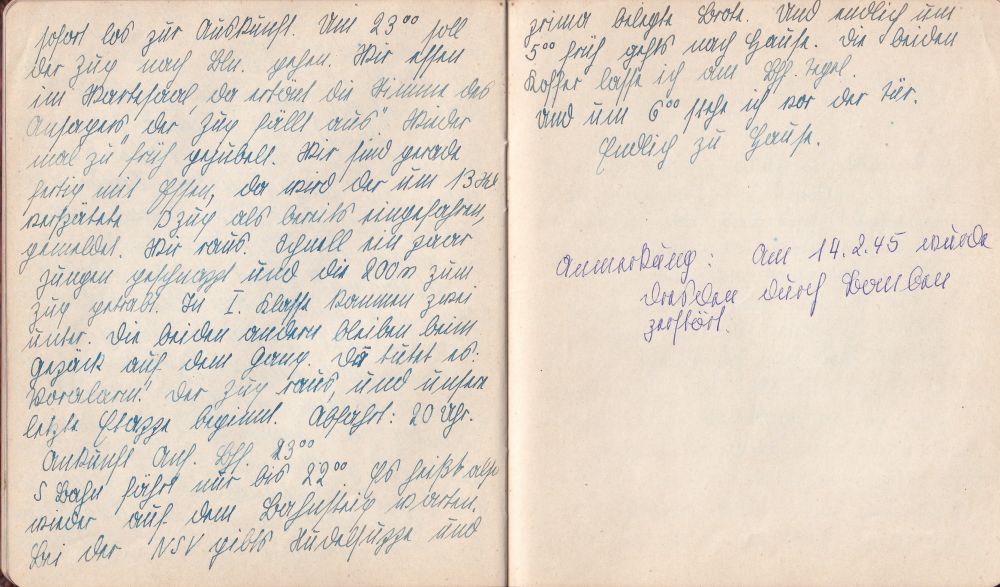 sofort los zur Auskunft. Um 23⁰⁰ soll
der Zug nach Bln. gehen. Wir essen
im Wartesaal, da ertönt die Stimme des
Ansagers „der Zug fällt aus". Wieder
mal zu früh gejubelt. Wir sind gerade
fertig mit Essen, da wird der um 13 Std
verspätete D Zug als bereits eingefahren,
gemeldet. Wir raus. Schnell ein paar
Jungen geschnappt und die 800 m zum
Zug getrabt. In I. Klasse kommen zwei
unter. Die beiden andern bleiben beim
Gepäck auf dem Gang. Da tutet es:
Voralarm! Der Zug raus, und unsere
letzte Etappe beginnt. Abfahrt: 20 Uhr.
Ankunft Anh. Bhf. 23⁰⁰
S Bahn fährt nur bis 22⁰⁰. Es heißt also
wieder auf dem Bahnsteig warten.
Bei der NSV gibts Nudelsuppe und
prima belegte Brote. Und endlich um
5⁰⁰ früh gehts nach Hause. Die beiden
Koffer lasse ich am Bhf. Tegel.
Und um 6⁰⁰ stehe ich vor der Tür.
Endlich zu Hause.
Anmerkung: Am 14.2.45 wurde
Dresden durch Bomben
zerstört.